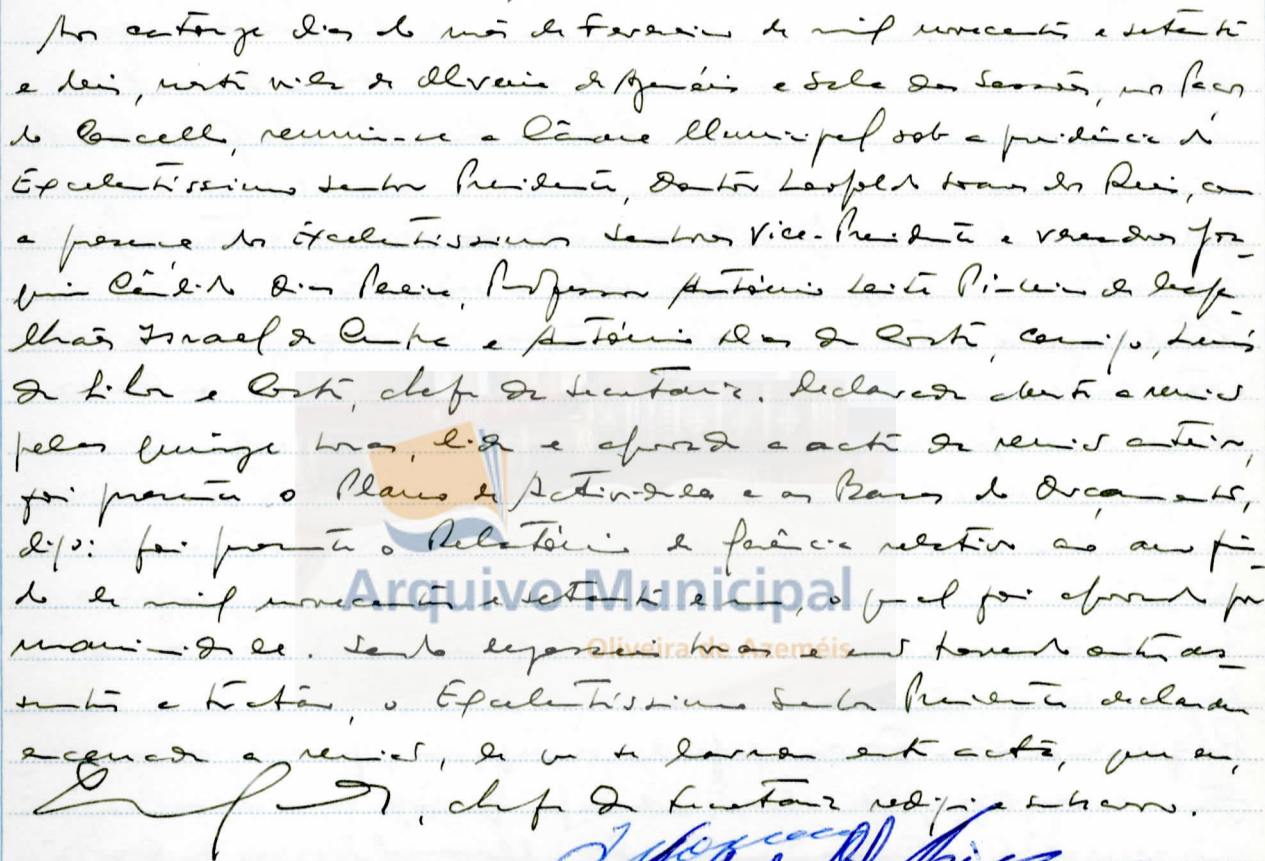 Aos catorze dias do mês de Fevereiro de mil novecentos e setenta
e dois, nesta vila de Oliveira de Azeméis e Sala das Sessões, nos Paços
do Concelho, reuniu-se a Câmara Municipal sob a presidência do
Excelentíssimo Senhor Presidente, Doutor Leopoldo Soares dos Reis, com
a presença dos Excelentíssimos Senhores Vice-Presidente e vereadores Joa-
quim Cândido Dias Pereira, Professor António Leite Pinheiro de Maga-
lhães Israel da Cunha e António Dias da Costa, comigo, Luís
da Silva e Costa, chefe da Secretaria. Declarada aberta a reunião
pelas quinze horas, lida e aprovada a acta da reunião anterior,
foi presente o Plano de Actividades e as Bases do Orçamento,
digo: foi presente o Relatório de Gerência relativo ao ano fin-
do de mil novecentos e setenta e um, o qual foi aprovado por
unanimidade. Sendo dezasseis horas e não havendo outros as-
suntos a tratar, o Excelentíssimo Senhor Presidente declarou
encerrada a reunião, de que se lavrou esta acta, que eu,
, chefe da Secretaria redigi e subscrevo.
Arquivo Municipal
Oliveira de Azeméis